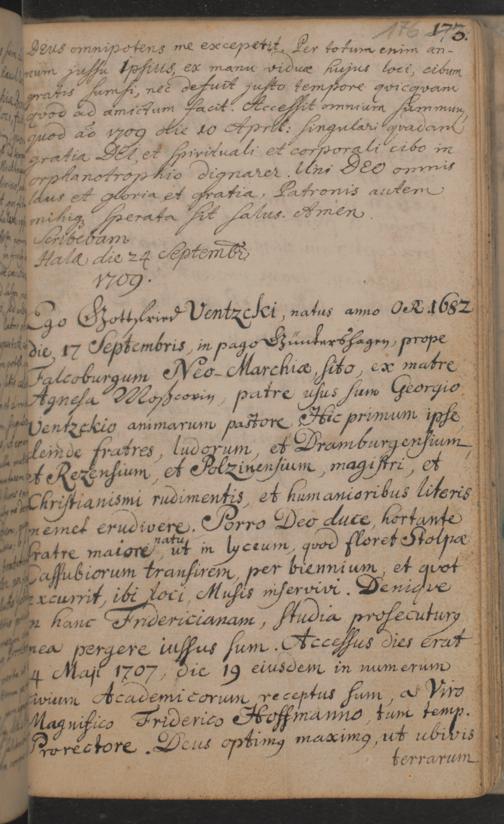 176 173.
Deus omnipotens me excepetit. Per totum enim an-
num jussu Ipsius, ex manu viduæ hujus loci, cibum
gratis sumsi, nec defuit justo tempore qvicqvam
qvod ad amictum facit. Accessit omnium summum,
quod aō 1709 die 10 April: singulari qvadam
gratia DEI, et spirituali et corporali cibo in
orphanotrophio dignarer. Uni DEO omnis
laus et gloria et gratia. Patronis autem
mihiq sperata sit salus. Amen.
Scribebam
Halæ die 24 Septembr
1709.
Ego Gottfried Ventzcki, natus anno OR 1682
die, 17 Septembris, in pago Güntershagen, prope
Falcoburgum Neo-Marchiæ, sito, ex matre
Agnesa, patre usus sum Georgio
Ventzckio animarum pastore. Hic primum ipse
deinde fratres, ludorum, et Dramburgensium,
et Rezensium, et Polzinensium, magistri, et
Christianismi rudimentis, et humanioribus literis
memet erudivere. Porro Deo duce, hortante
fratre maiore natu, ut in lyceum, qvod floret Stolpæ
Cassubiorum transirem, per biennium, et qvot
excurrit, ibi loci, Musis inservivi. Deniqve
in hanc Fridericianam, studia prosecuturq
mea pergere iussus sum. Accessus dies erat
4 Maji 1707, die 19 eiusdem in numerum
civium Academicorum receptus sum, a Viro
Magnifico Friderico Hoffmanno, tum temp.
Prorectore. Deus optimq maximq, ut ubivis
terrarum